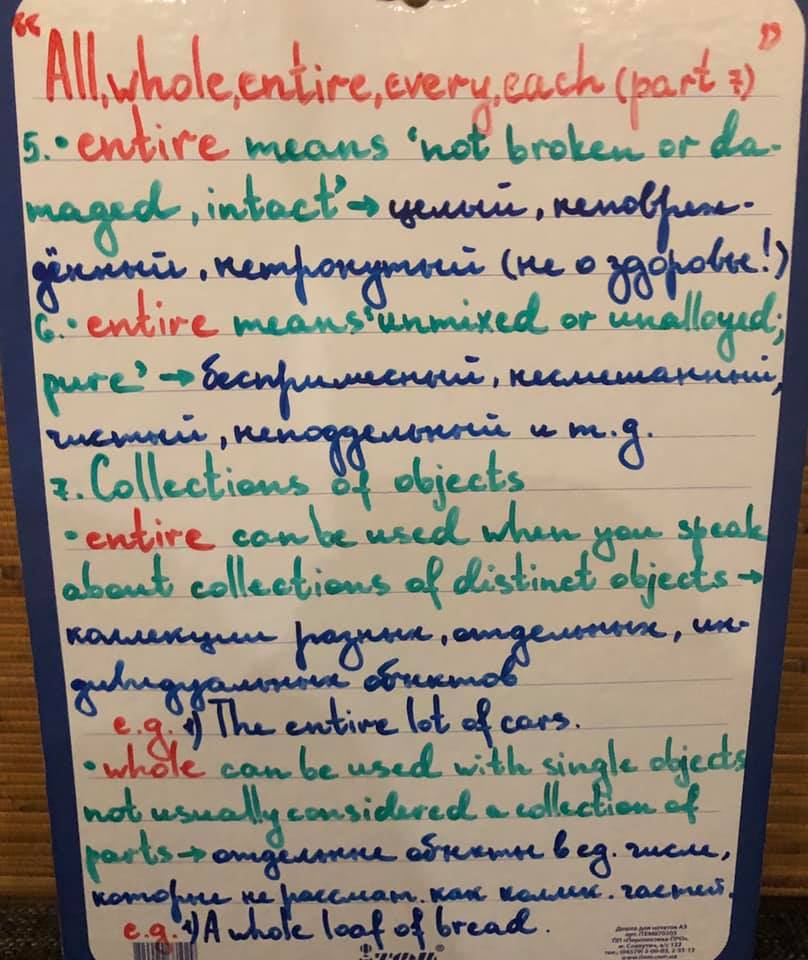 "All, whole, entire, every, each (part 7)"
5. • entire means 'not broken or da-
maged, intact' → целый, неповреж-
дённый, нетронутый (не о здоровье!)
6. • entire means 'unmixed or unalloyed;
pure' → беспримесный, несмешанный,
чистый, неподдельный и т.д.
7. Collections of objects
• entire can be used when you speak
about collections of distinct objects →
коллекции разных, отдельных, ин-
дивидуальных объектов
e.g. 1) The entire lot of cars.
• whole can be used with single objects
not usually considered a collection of
parts → отдельные объекты в ед. числе,
которые не рассмат. как коллек. частей.
e.g. 1) A whole loaf of bread.
Дошка для нотаток А3
ПП «Перспектива-ПРО»,